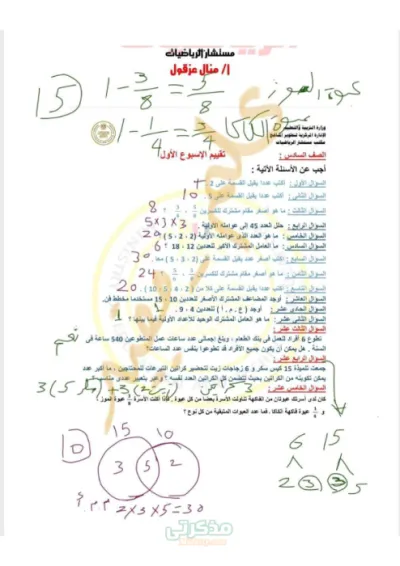 مستشار الرياضيات
أ/ منال عزقول
5
1 - 3/8 = 5/8
عبوة الموز
1 - 1/4 = 3/4
وزارة التربية والتعليم
الإدارة المركزية لتطوير المناهج
مكتب مستشار الرياضيات
الصف السادس :
تقييم الإسبوع الأول
أجب عن الأسئلة الآتية :
السؤال الأول : اكتب عددا يقبل القسمة على 2
السؤال الثاني : اكتب عددا يقبل القسمة على 5 . 10
السؤال الثالث : ما هو أصغر مقام مشترك للكسرين 8
السؤال الرابع : حلل العدد 45 إلى عوامله الأولية . 5x3x3
السؤال الخامس : ما هو العدد الذي عوامله الأولية ( 2 - 2 - 5 ) 20
السؤال السادس : ما العامل المشترك الأكبر للعددين 12 - 18 ؟ 6
السؤال السابع : اكتب أصغر عدد يقبل القسمة على ( 2 - 5 - 3 ) معا . 30
السؤال الثامن : ما هو أصغر مقام مشترك للكسرين 24
السؤال التاسع : اكتب عددا يقبل القسمة على كلا من ( 2 - 4 - 5 - 10 ) . 20
السؤال العاشر : أوجد المضاعف المشترك الأصغر للعددين 10 - 15 مستخدما مخطط فن.
السؤال الحادي عشر : أوجد ( ع . م . أ ) للعددين 4 - 9 . 1
السؤال الثاني عشر : ما هو العامل المشترك الوحيد للأعداد الأولية فيما بينها ؟ 1
السؤال الثالث عشر :
تطوع 6 أفراد للعمل في بنك الطعام ، وبلغ إجمالي عدد ساعات عمل المتطوعين 540 ساعة في
السنة . هل يمكن أن يكون جميع الأفراد قد تطوعوا بنفس عدد الساعات؟ نعم
السؤال الرابع عشر :
جمعت تلميذة 15 كيس سكر و 6 زجاجات زيت لتحضير كراتين التبرعات للمحتاجين ، ما أكبر عدد
يمكن تكوينه من الكراتين بحيث تتضمن كل الكراتين العدد نفسه ؟ وعبر بتعبير عددي
السؤال الخامس عشر :
كان لدى أسرتك عبوتان من الفاكهة تناولت الأسرة بعضا من كل عبوة ، فإذا أكلت الأسرة 3/8 عبوة الموز ؟
و 1/4 عبوة فاكهة الكاكا، فما عدد العبوات المتبقية من كل نوع ؟
10
15
10
3
5
2
م.م.أ 2x3x5=30
6
15
2
3
3
5
مذكرتي